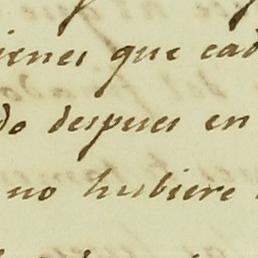 ienes que cad
do despues en
no hubiere